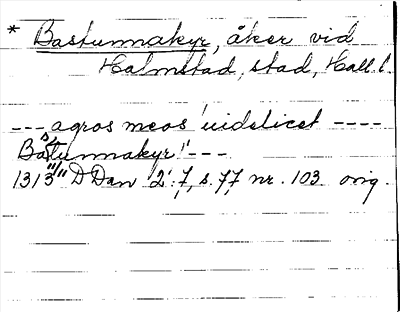 * Bastunnakyr, åker vid
Halmstad, stad, Hall. l.
--- agros meos uidelicet ----
Bastunnakyr ---
1313 DDan 2:7, s. 77, nr. 103 orig.